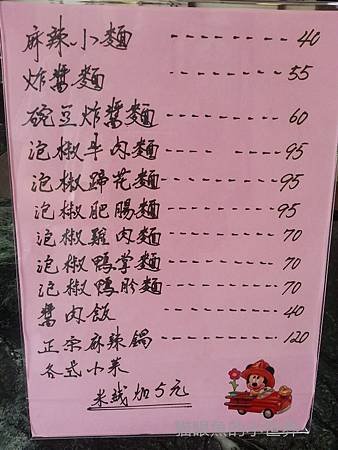 麻辣小麵 -------- 40
炸醬麵 -------- 55
碗豆炸醬麵 -------- 60
泡椒牛肉麵 -------- 95
泡椒蹄花麵 -------- 95
泡椒肥腸麵 -------- 95
泡椒雞肉麵 -------- 70
泡椒鴨掌麵 -------- 70
泡椒鴨肫麵 -------- 70
醬肉飯 -------- 40
正宗麻辣鍋 -------- 120
各式小菜
米线加5元
貓眼魚的小世界